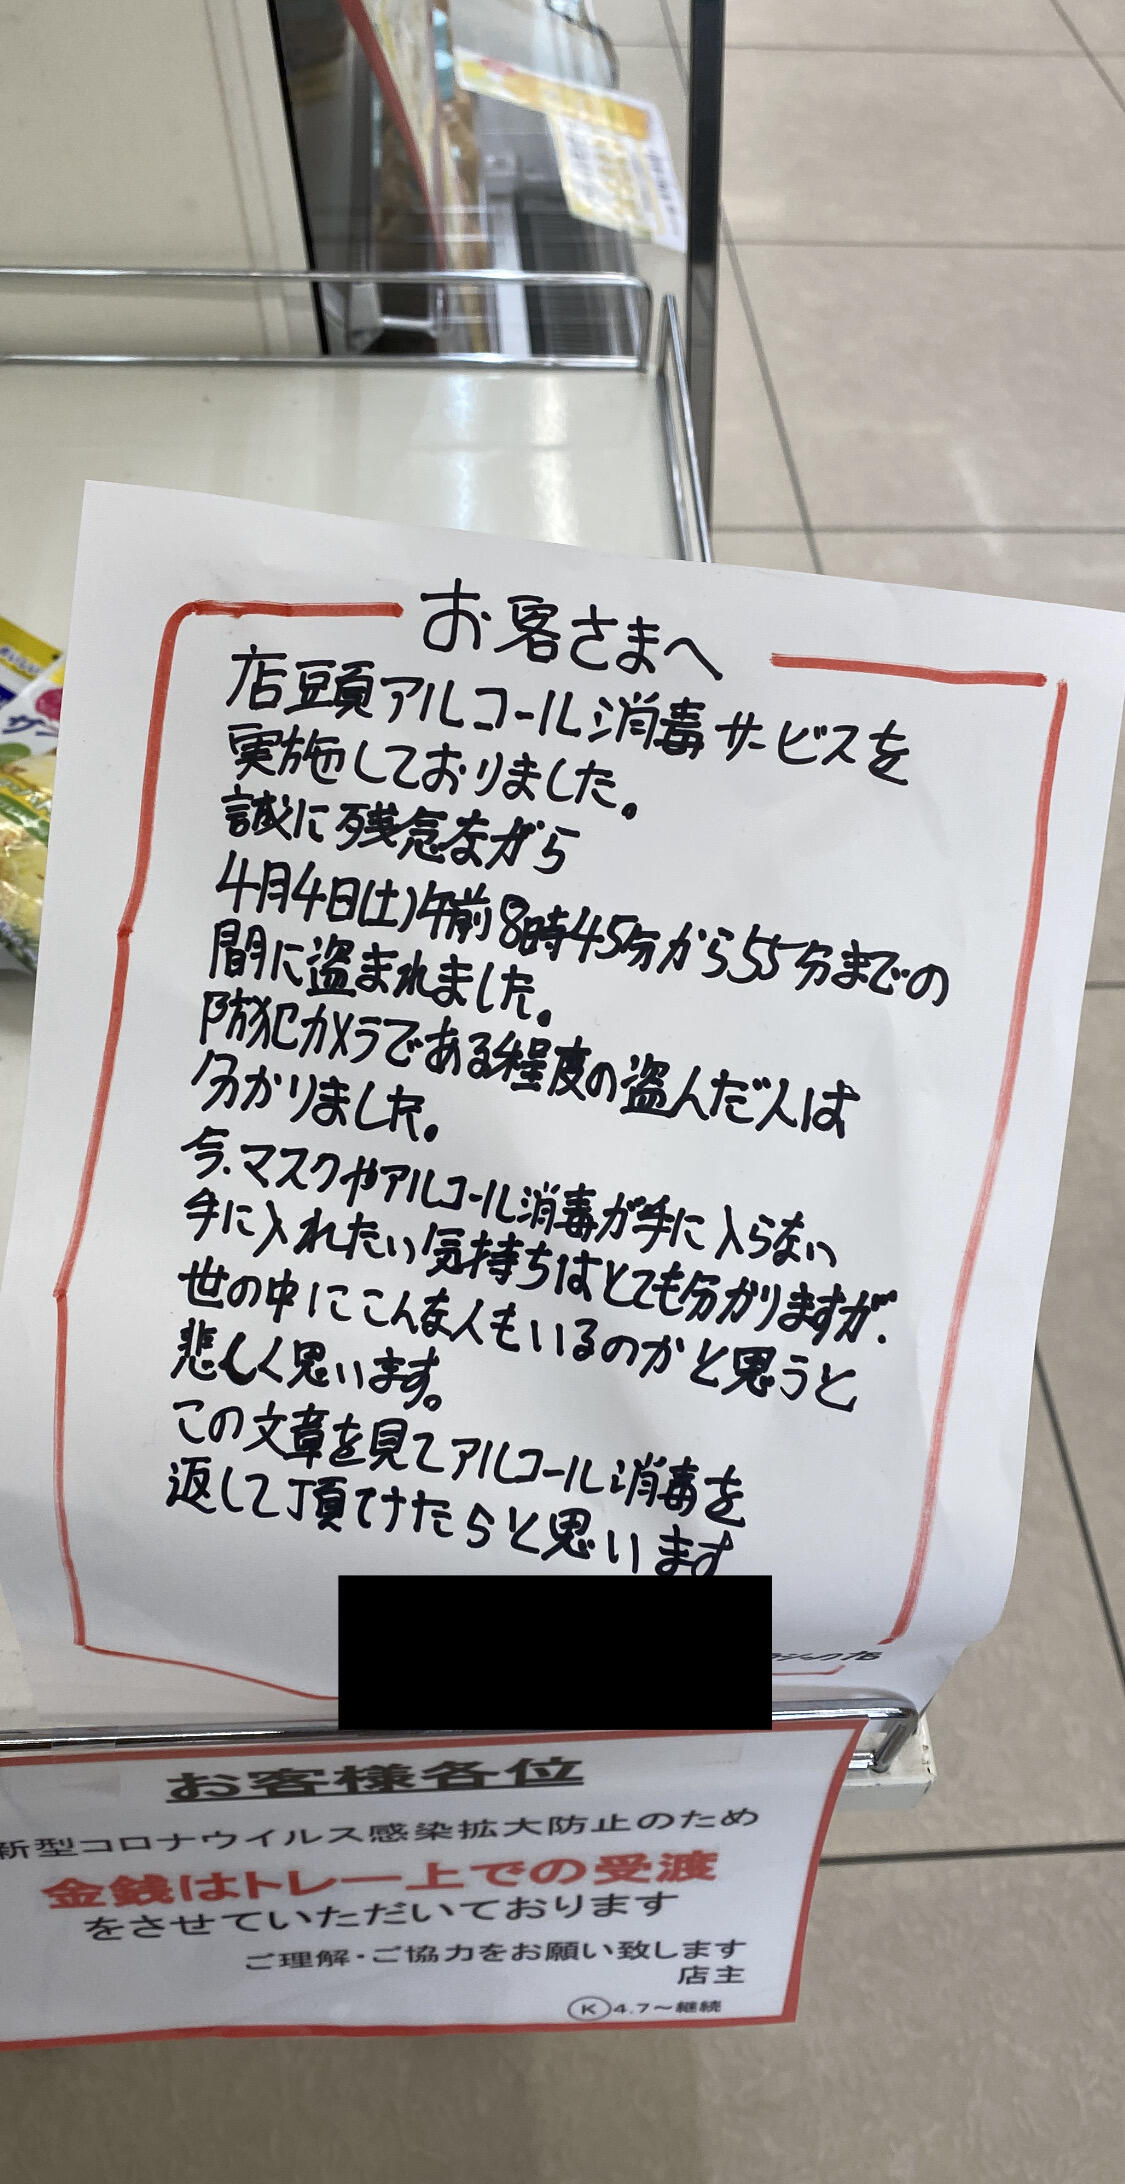 お客さまへ
店頭アルコール消毒サービスを
実施しておりました。
誠に残念ながら
4月4日(土)午前8時45分から55分までの
間に盗まれました。
防犯カメラである程度の盗んだ人は
分かりました。
今、マスクやアルコール消毒が手に入らない
手に入れたい気持ちはとても分かりますが、
世の中にこんな人もいるのかと思うと
悲しく思います。
この文章を見てアルコール消毒を
返して頂けたらと思います
お客様各位
新型コロナウイルス感染拡大防止のため
金銭はトレー上での受渡
をさせていただいております
ご理解・ご協力をお願い致します
店主
K 4.7～継続